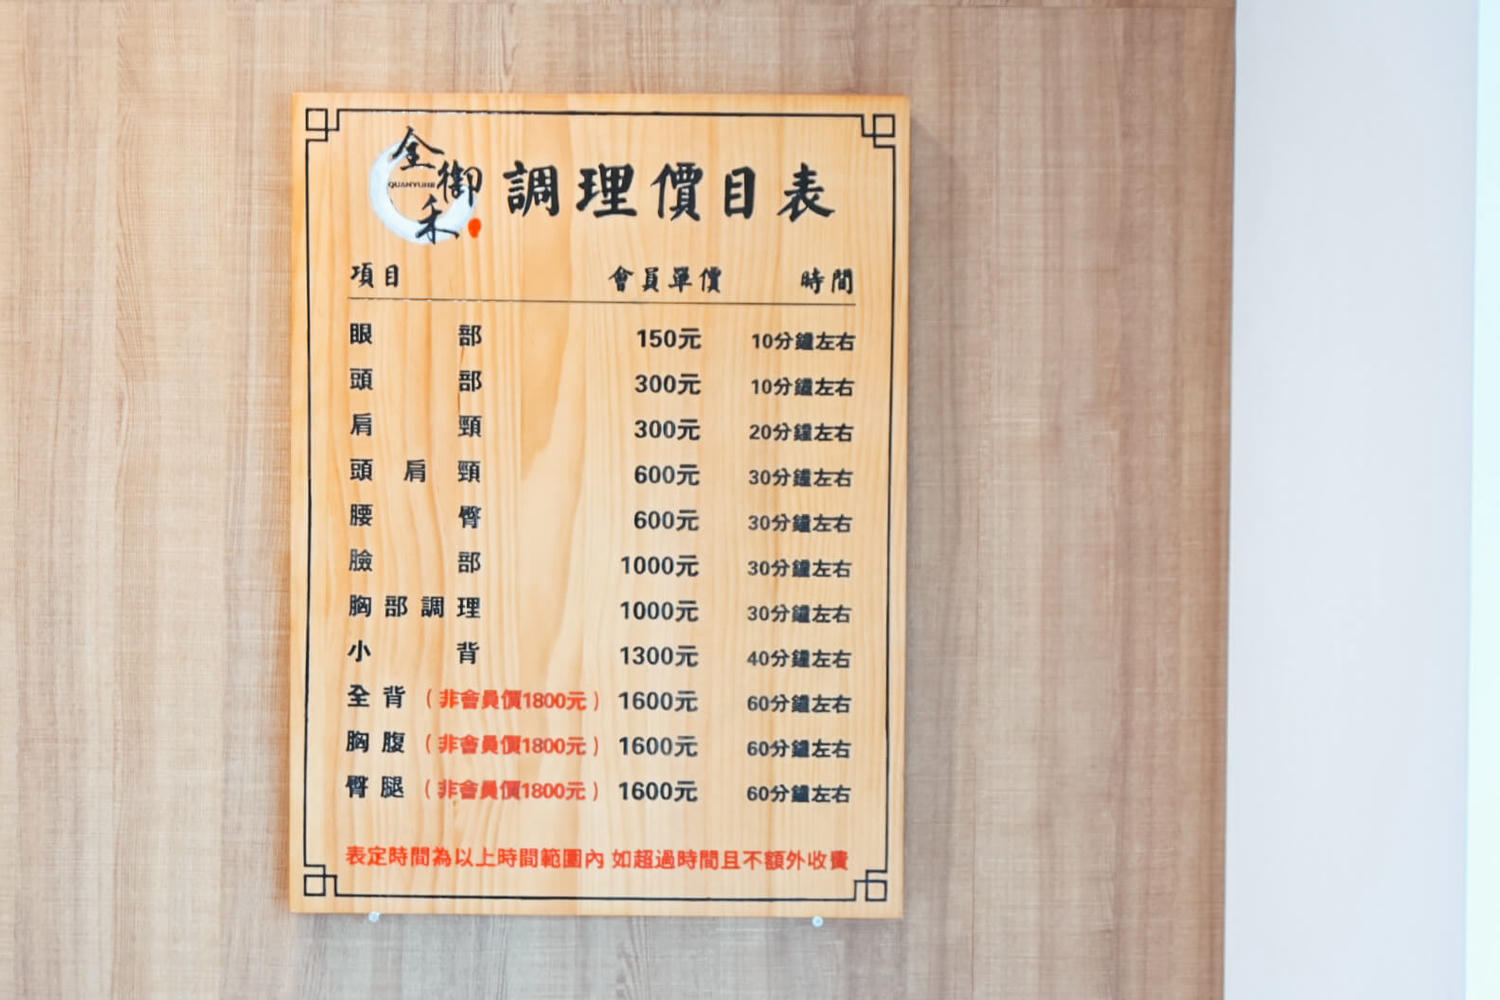 全御禾 調理價目表
QUANYUHE
項目 會員單價 時間
眼部 150元 10分鐘左右
頭部 300元 10分鐘左右
肩頸 300元 20分鐘左右
頭肩頸 600元 30分鐘左右
腰臀 600元 30分鐘左右
臉部 1000元 30分鐘左右
胸部調理 1000元 30分鐘左右
小背 1300元 40分鐘左右
全背（非會員價1800元） 1600元 60分鐘左右
胸腹（非會員價1800元） 1600元 60分鐘左右
臀腿（非會員價1800元） 1600元 60分鐘左右
表定時間為以上時間範圍內 如超過時間且不額外收費